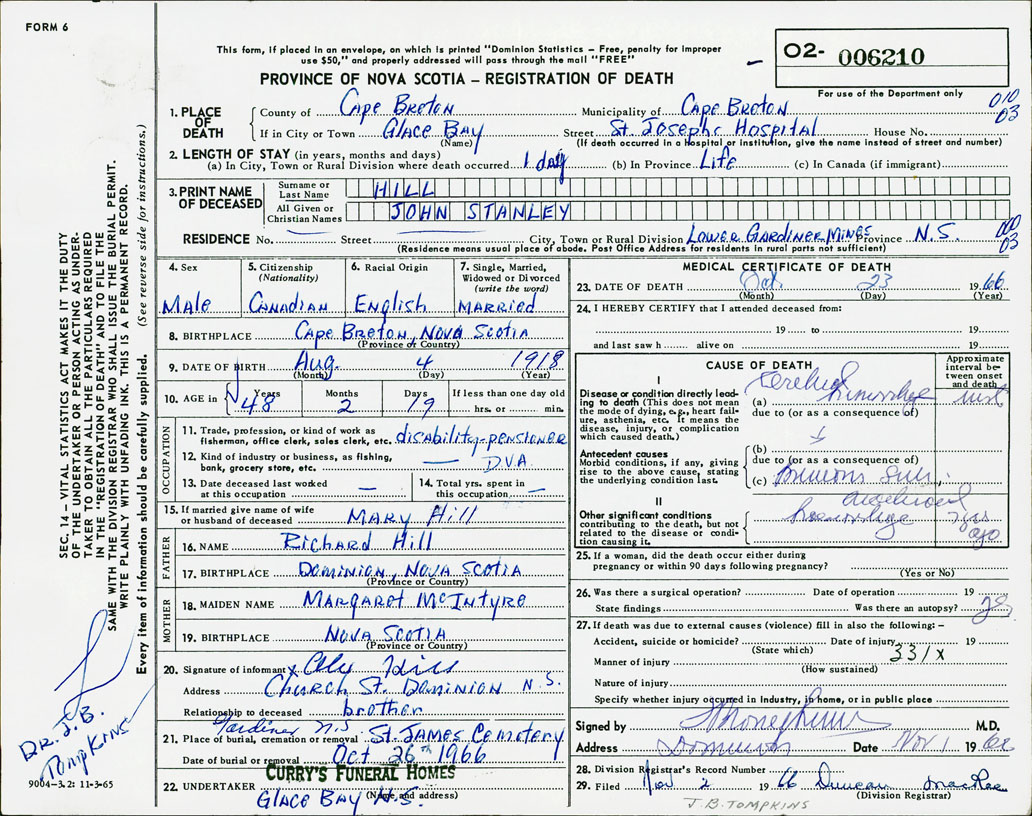 FORM 6
This form, if placed in an envelope, on which is printed "Dominion Statistics – Free, penalty for improper
use $50," and properly addressed will pass through the mail "FREE"
PROVINCE OF NOVA SCOTIA – REGISTRATION OF DEATH
02- 006210
For use of the Department only
010
03
1. PLACE OF DEATH
County of Cape Breton Municipality of Cape Breton
If in City or Town Glace Bay Street St. Josephs Hospital House No.
(Name) (If death occurred in a Hospital or institution, give the name instead of street and number)
2. LENGTH OF STAY (in years, months and days)
(a) In City, Town or Rural Division where death occurred 1 day (b) In Province Life (c) In Canada (if immigrant)
3. PRINT NAME OF DECEASED
Surname or Last Name HILL
All Given or Christian Names JOHN STANLEY
RESIDENCE No. Street City, Town or Rural Division Lower Gardiner Mines Province N.S.
(Residence means usual place of abode. Post Office Address for residents in rural parts not sufficient)
000
03
4. Sex Male
5. Citizenship (Nationality) Canadian
6. Racial Origin English
7. Single, Married, Widowed or Divorced (write the word) Married
8. BIRTHPLACE Cape Breton, Nova Scotia
(Province or Country)
9. DATE OF BIRTH Aug. 4 1918
(Month) (Day) (Year)
10. AGE in Years 48 Months 2 Days 19 If less than one day old hrs. or min.
OCCUPATION
11. Trade, profession, or kind of work as fisherman, office clerk, sales clerk, etc. disability-pensioner
12. Kind of industry or business, as fishing, bank, grocery store, etc. — D.V.A.
13. Date deceased last worked at this occupation —
14. Total yrs. spent in this occupation —
15. If married give name of wife or husband of deceased Mary Hill
FATHER
16. NAME Richard Hill
17. BIRTHPLACE Dominion, Nova Scotia
(Province or Country)
MOTHER
18. MAIDEN NAME Margaret McIntyre
19. BIRTHPLACE Nova Scotia
(Province or Country)
20. Signature of informant x Hill
Address Church St. Dominion N.S.
Relationship to deceased brother
Gardiner N.S
21. Place of burial, cremation or removal St. James Cemetery
Date of burial or removal Oct 26th 1966
22. UNDERTAKER CURRY'S FUNERAL HOMES
(Name and address)
Glace Bay N.S.
MEDICAL CERTIFICATE OF DEATH
23. DATE OF DEATH Oct. 23 1966
(Month) (Day) (Year)
24. I HEREBY CERTIFY that I attended deceased from:
19 to 19
and last saw h alive on 19
CAUSE OF DEATH
Approximate interval between onset and death
I
Disease or condition directly leading to death (This does not mean the mode of dying, e.g., heart failure, asthenia, etc. It means the disease, injury, or complication which caused death.)
(a) Cerebral hemorrhage inst
due to (or as a consequence of)
Antecedent causes
Morbid conditions, if any, giving rise to the above cause, stating the underlying condition last.
(b)
due to (or as a consequence of)
(c) Previous
II
Other significant conditions contributing to the death, but not related to the disease or condition causing it.
haemorrhage yrs ago
25. If a woman, did the death occur either during pregnancy or within 90 days following pregnancy?
(Yes or No)
26. Was there a surgical operation? Date of operation 19
State findings Was there an autopsy?
27. If death was due to external causes (violence) fill in also the following: –
Accident, suicide or homicide? Date of injury 19
(State which) 331X
Manner of injury
(How sustained)
Nature of injury
Specify whether injury occurred in Industry, in home, or in public place
Signed by M.D.
Address Dominion Date Nov 1 1966
28. Division Registrar's Record Number
29. Filed Nov 2 1966 Duncan MacRae
(Division Registrar)
J.B. TOMPKINS
SEC. 14 – VITAL STATISTICS ACT MAKES IT THE DUTY
OF THE UNDERTAKER OR PERSON ACTING AS UNDER-
TAKER TO OBTAIN ALL THE PARTICULARS REQUIRED
IN THE "REGISTRATION OF DEATH" AND TO FILE THE
SAME WITH THE DIVISION REGISTRAR WHO SHALL ISSUE THE BURIAL PERMIT.
WRITE PLAINLY WITH UNFADING INK. THIS IS A PERMANENT RECORD.
Every item of information should be carefully supplied. (See reverse side for instructions.)
Dr. J.B.
Tompkins
9004-3.2: 11-3-65